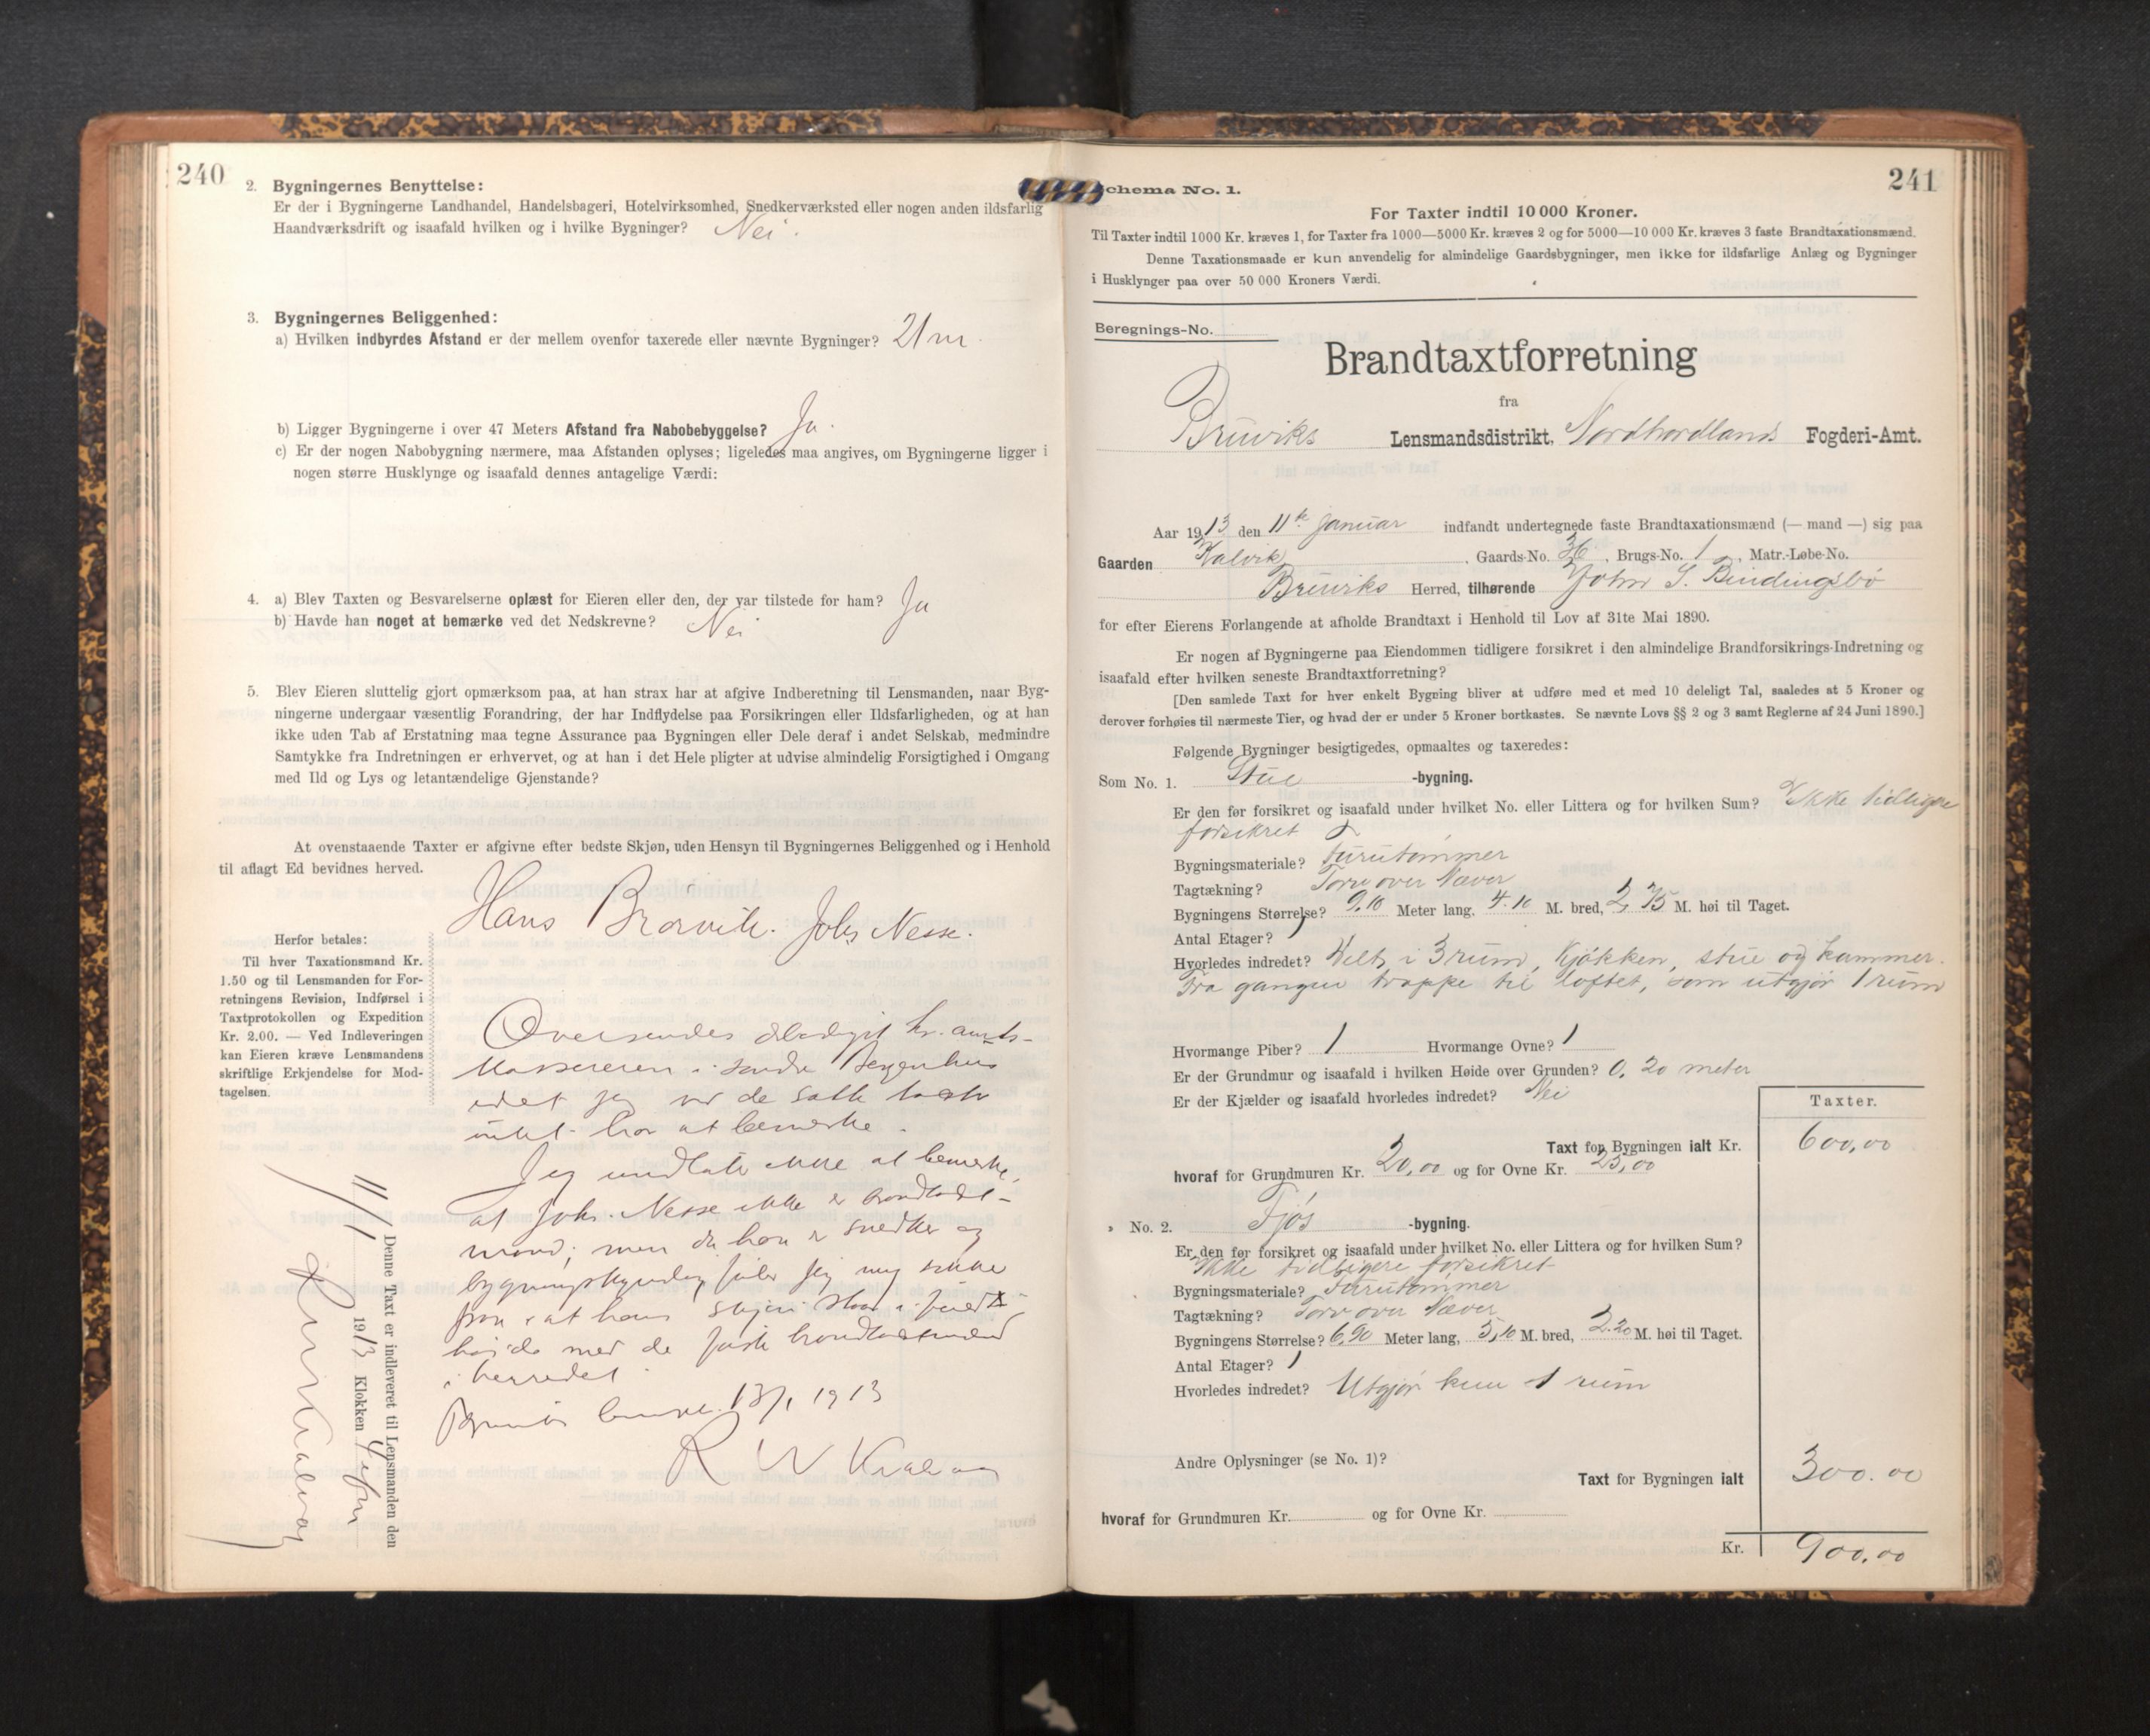 240
2. Bygningernes Benyttelse:
Er der i Bygningerne Landhandel, Handelsbageri, Hotelvirksomhed, Snedkerværksted eller nogen anden ildsfarlig
Haandværksdrift og isaafald hvilken og i hvilke Bygninger? Nei.
3. Bygningernes Beliggenhed:
a) Hvilken indbyrdes Afstand er der mellem ovenfor taxerede eller nævnte Bygninger? 21 m.
b) Ligger Bygningerne i over 47 Meters Afstand fra Nabobebyggelse? Ja.
c) Er der nogen Nabobygning nærmere, maa Afstanden oplyses; ligeledes maa angives, om Bygningerne ligger i
nogen større Husklynge og isaafald dennes antagelige Værdi:
4. a) Blev Taxten og Besvarelserne oplæst for Eieren eller den, der var tilstede for ham? Ja
b) Havde han noget at bemærke ved det Nedskrevne? Nei
5. Blev Eieren sluttelig gjort opmærksom paa, at han strax har at afgive Indberetning til Lensmanden, naar Byg-
ningerne undergaar væsentlig Forandring, der har Indflydelse paa Forsikringen eller Ildsfarligheden, og at han
ikke uden Tab af Erstatning maa tegne Assurance paa Bygningen eller Dele deraf i andet Selskab, medmindre
Samtykke fra Indretningen er erhvervet, og at han i det Hele pligter at udvise almindelig Forsigtighed i Omgang
med Ild og Lys og letantændelige Gjenstande?
At ovenstaaende Taxter er afgivne efter bedste Skjøn, uden Hensyn til Bygningernes Beliggenhed og i Henhold
til aflagt Ed bevidnes herved.
Hans Brorvik. Johs Nesse.
Herfor betales:
Til hver Taxationsmand Kr.
1.50 og til Lensmanden for For-
retningens Revision, Indførsel i
Taxtprotokollen og Expedition
Kr. 2.00. — Ved Indleveringen
kan Eieren kræve Lensmandens
skriftlige Erkjendelse for Mod-
tagelsen.
Oversendes hr. amts-
kassereren i søndre Bergenhus
idet jeg ved de satte takster
intet har at bemerke.
Jeg undlater ikke at bemerke,
at Johs. Nesse ikke er brandtakst-
mand; men da han er snedker og
bygningskyndig føler jeg mig sikker
paa at hans skjøn staar i
høide med de faste brandtaxtmænd
i herredet.
13/1 1913
R W
Denne Taxt er indleveret til Lensmanden den
11/1 1913 Klokken 4
241
Schema No. 1.
For Taxter indtil 10 000 Kroner.
Til Taxter indtil 1000 Kr. kræves 1, for Taxter fra 1000—5000 Kr. kræves 2 og for 5000—10 000 Kr. kræves 3 faste Brandtaxationsmænd.
Denne Taxationsmaade er kun anvendelig for almindelige Gaardsbygninger, men ikke for ildsfarlige Anlæg og Bygninger
i Husklynger paa over 50 000 Kroners Værdi.
Beregnings-No.
Brandtaxtforretning
fra
Bruviks Lensmandsdistrikt, Nordhordlands Fogderi-Amt.
Aar 1913 den 11te januar indfandt undertegnede faste Brandtaxationsmænd (— mand —) sig paa
Gaarden Kalvik, Gaards-No. 36, Brugs-No. 1, Matr.-Løbe-No.
Bruviks Herred, tilhørende John S. Bindingsbø
for efter Eierens Forlangende at afholde Brandtaxt i Henhold til Lov af 31te Mai 1890.
Er nogen af Bygningerne paa Eiendommen tidligere forsikret i den almindelige Brandforsikrings-Indretning og
isaafald efter hvilken seneste Brandtaxtforretning?
[Den samlede Taxt for hver enkelt Bygning bliver at udføre med et med 10 deleligt Tal, saaledes at 5 Kroner og
derover forhøies til nærmeste Tier, og hvad der er under 5 Kroner bortkastes. Se nævnte Lovs §§ 2 og 3 samt Reglerne af 24 Juni 1890.]
Følgende Bygninger besigtigedes, opmaaltes og taxeredes:
Som No. 1. Stue -bygning.
Er den før forsikret og isaafald under hvilket No. eller Littera og for hvilken Sum? Ikke tidligere
forsikret
Bygningsmateriale? furutømmer
Tagtækning? Torv over Næver
Bygningens Størrelse? 9,10 Meter lang, 4.10 M. bred, 2,75 M. høi til Taget.
Antal Etager? 1
Hvorledes indredet? Delt i 3 rum, Kjøkken, stue og kammer.
Fra gangen trappe til loftet, som utgjør 1 rum
Hvormange Piber? 1 Hvormange Ovne? 1
Er der Grundmur og isaafald i hvilken Høide over Grunden? 0,20 meter
Er der Kjælder og isaafald hvorledes indredet? Nei
Taxter.
Taxt for Bygningen ialt Kr. 600,00
hvoraf for Grundmuren Kr. 20,00 og for Ovne Kr. 25,00
» No. 2. Fjøs -bygning.
Er den før forsikret og isaafald under hvilket No. eller Littera og for hvilken Sum?
Ikke tidligere forsikret
Bygningsmateriale? furutømmer
Tagtækning? Torv over Næver
Bygningens Størrelse? 6,90 Meter lang, 5,10 M. bred, 2.20 M. høi til Taget.
Antal Etager? 1
Hvorledes indredet? Utgjør kun 1 rum
Andre Oplysninger (se No. 1)?
Taxt for Bygningen ialt 300.00
hvoraf for Grundmuren Kr. og for Ovne Kr.
Kr. 900,00